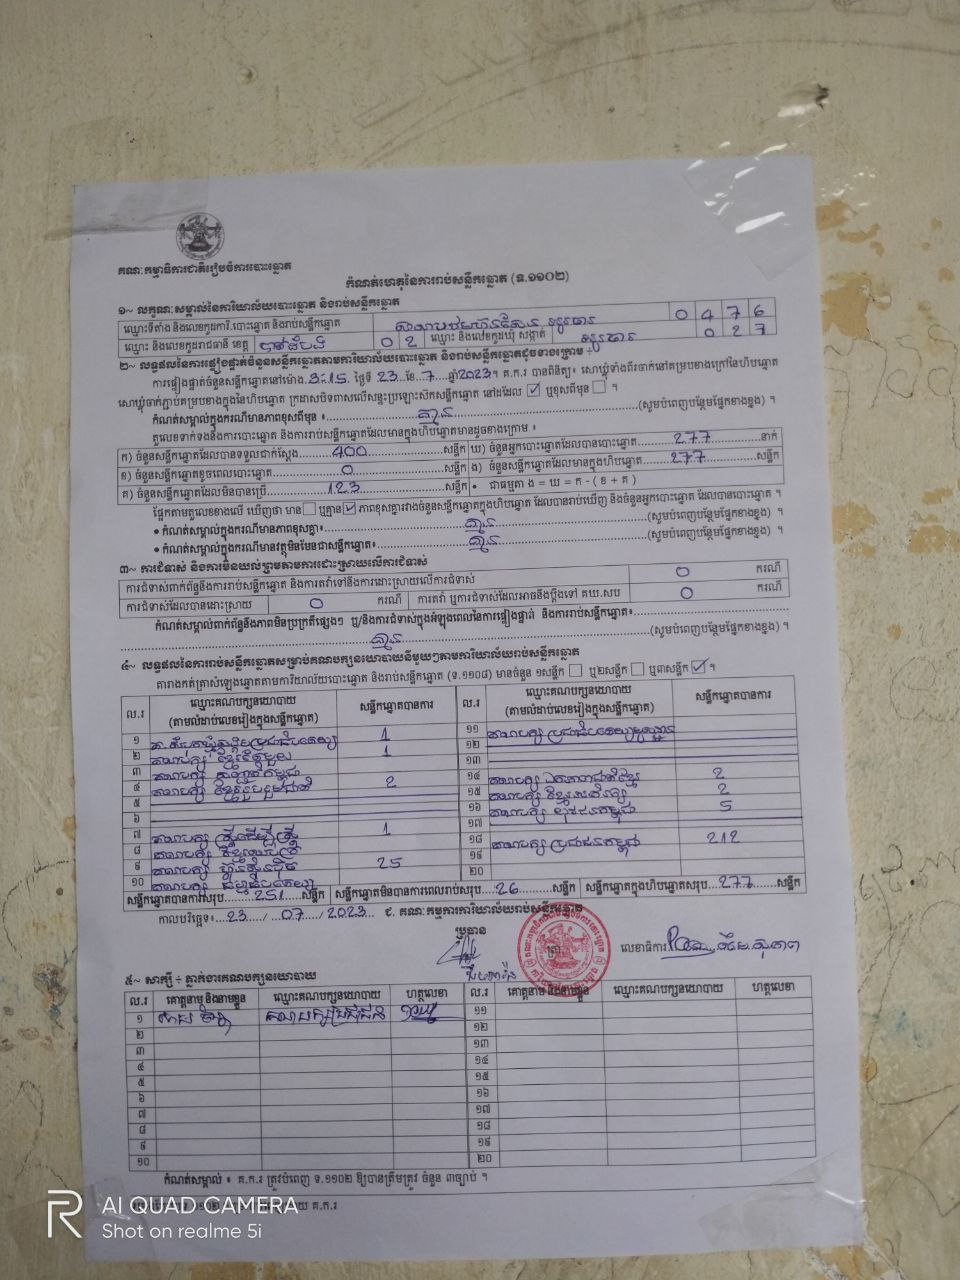 គណៈកម្មាធិការជាតិរៀបចំការបោះឆ្នោត
កំណត់ហេតុនៃការរាប់សន្លឹកឆ្នោត (ទ.១១០២)
១~ លក្ខណៈសម្គាល់នៃការិយាល័យបោះឆ្នោត និងរាប់សន្លឹកឆ្នោត
ឈ្មោះទីតាំង និងលេខកូដការិ.បោះឆ្នោត និងរាប់សន្លឹកឆ្នោត 0 4 7 6
ឈ្មោះ និងលេខកូដរាជធានី ខេត្ត បាត់ដំបង 0 2 ឈ្មោះ និងលេខកូដឃុំ សង្កាត់ 0 2 7
២~ លទ្ធផលនៃការផ្ទៀងផ្ទាត់ចំនួនសន្លឹកឆ្នោតតាមការិយាល័យបោះឆ្នោត និងរាប់សន្លឹកឆ្នោតដូចខាងក្រោម ៖
ការផ្ទៀងផ្ទាត់ចំនួនសន្លឹកឆ្នោតនៅម៉ោង 3:15 ថ្ងៃទី 23 ខែ 7 ឆ្នាំ 2023។ គ.ក.រ បានពិនិត្យ សោឃ្មុំទាំងពីរចាក់នៅគម្របខាងក្រៅនៃហិបឆ្នោត
សោឃ្មុំចាក់ភ្ជាប់គម្របខាងក្នុងនៃហិបឆ្នោត ក្រដាសបិទពាសលើសន្ទះប្រឡោះស៊កសន្លឹកឆ្នោត នៅដដែល ☑ ឬខុសពីមុន ☐ ។
កំណត់សម្គាល់ក្នុងករណីមានភាពខុសពីមុន ៖ គ្មាន (សូមបំពេញបន្ថែមផ្នែកខាងខ្នង) ។
តួលេខទាក់ទងនឹងការបោះឆ្នោត និងការរាប់សន្លឹកឆ្នោតដែលមានក្នុងហិបឆ្នោតមានដូចខាងក្រោម ៖
ក) ចំនួនសន្លឹកឆ្នោតដែលបានទទួលជាក់ស្តែង 400 សន្លឹក ឃ) ចំនួនអ្នកបោះឆ្នោតដែលបានបោះឆ្នោត 277 នាក់
ខ) ចំនួនសន្លឹកឆ្នោតខូចពេលបោះឆ្នោត 0 សន្លឹក ង) ចំនួនសន្លឹកឆ្នោតដែលមានក្នុងហិបឆ្នោត 277 សន្លឹក
គ) ចំនួនសន្លឹកឆ្នោតដែលមិនបានប្រើ 123 សន្លឹក • ជាធម្មតា ង = ឃ = ក - ( ខ + គ )
ផ្អែកតាមតួលេខខាងលើ ឃើញថា មាន ☐ ឬគ្មាន ☑ ភាពខុសគ្នារវាងចំនួនសន្លឹកឆ្នោតក្នុងហិបឆ្នោត ដែលបានរាប់ឃើញ និងចំនួនអ្នកបោះឆ្នោត ដែលបានបោះឆ្នោត ។
• កំណត់សម្គាល់ក្នុងករណីមានភាពខុសគ្នា៖ គ្មាន (សូមបំពេញបន្ថែមផ្នែកខាងខ្នង) ។
• កំណត់សម្គាល់ក្នុងករណីមានវត្ថុមិនមែនជាសន្លឹកឆ្នោត៖ គ្មាន (សូមបំពេញបន្ថែមផ្នែកខាងខ្នង) ។
៣~ ការជំទាស់ និងការមិនយល់ព្រមតាមការដោះស្រាយលើការជំទាស់
ការជំទាស់ពាក់ព័ន្ធនឹងការរាប់សន្លឹកឆ្នោត និងការតវ៉ាទៅនឹងការដោះស្រាយលើការជំទាស់ 0 ករណី
ការជំទាស់ដែលបានដោះស្រាយ 0 ករណី ការតវ៉ា ឬការជំទាស់ដែលអាចនឹងប្តឹងទៅ គឃ.សប 0 ករណី
កំណត់សម្គាល់ពាក់ព័ន្ធនឹងភាពមិនប្រក្រតីផ្សេងៗ ឬ/និងការជំទាស់ក្នុងអំឡុងពេលនៃការផ្ទៀងផ្ទាត់ និងការរាប់សន្លឹកឆ្នោត៖
គ្មាន (សូមបំពេញបន្ថែមផ្នែកខាងខ្នង) ។
៤~ លទ្ធផលនៃការរាប់សន្លឹកឆ្នោតសម្រាប់គណបក្សនយោបាយនីមួយៗតាមការិយាល័យរាប់សន្លឹកឆ្នោត
តារាងកត់ត្រាសំឡេងឆ្នោតតាមការិយាល័យបោះឆ្នោត និងរាប់សន្លឹកឆ្នោត (ទ.១១០៨) មានចំនួន ១សន្លឹក ☐ ឬ២សន្លឹក ☐ ឬ៣សន្លឹក ☑ ។
ល.រ ឈ្មោះគណបក្សនយោបាយ (តាមលំដាប់លេខរៀងក្នុងសន្លឹកឆ្នោត) សន្លឹកឆ្នោតបានការ ល.រ ឈ្មោះគណបក្សនយោបាយ (តាមលំដាប់លេខរៀងក្នុងសន្លឹកឆ្នោត) សន្លឹកឆ្នោតបានការ
១ 1 ១១
២ 1 ១២
៣ ១៣
៤ 2 ១៤ 2
៥ ១៥ 2
៦ ១៦ 5
៧ 1 ១៧
៨ ១៨ គណបក្ស ប្រជាជនកម្ពុជា 212
៩ 25 ១៩
១០ ២០
សន្លឹកឆ្នោតបានការសរុប 251 សន្លឹក សន្លឹកឆ្នោតមិនបានការពេលរាប់សរុប 26 សន្លឹក សន្លឹកឆ្នោតក្នុងហិបឆ្នោតសរុប 277 សន្លឹក
កាលបរិច្ឆេទ៖ 23 / 07 / 2023 ជ. គណៈកម្មការការិយាល័យរាប់សន្លឹកឆ្នោត
ប្រធាន
ត្រា លេខាធិការ
៥~ សាក្សី ÷ ភ្នាក់ងារគណបក្សនយោបាយ
ល.រ គោត្តនាម និងនាមខ្លួន ឈ្មោះគណបក្សនយោបាយ ហត្ថលេខា ល.រ គោត្តនាម និងនាមខ្លួន ឈ្មោះគណបក្សនយោបាយ ហត្ថលេខា
១ គណបក្សប្រជាជន ១១
២ ១២
៣ ១៣
៤ ១៤
៥ ១៥
៦ ១៦
៧ ១៧
៨ ១៨
៩ ១៩
១០ ២០
កំណត់សម្គាល់ ៖ គ.ក.រ ត្រូវបំពេញ ទ.១១០២ ឱ្យបានត្រឹមត្រូវ ចំនួន ៣ច្បាប់ ។
R AI QUAD CAMERA
Shot on realme 5i